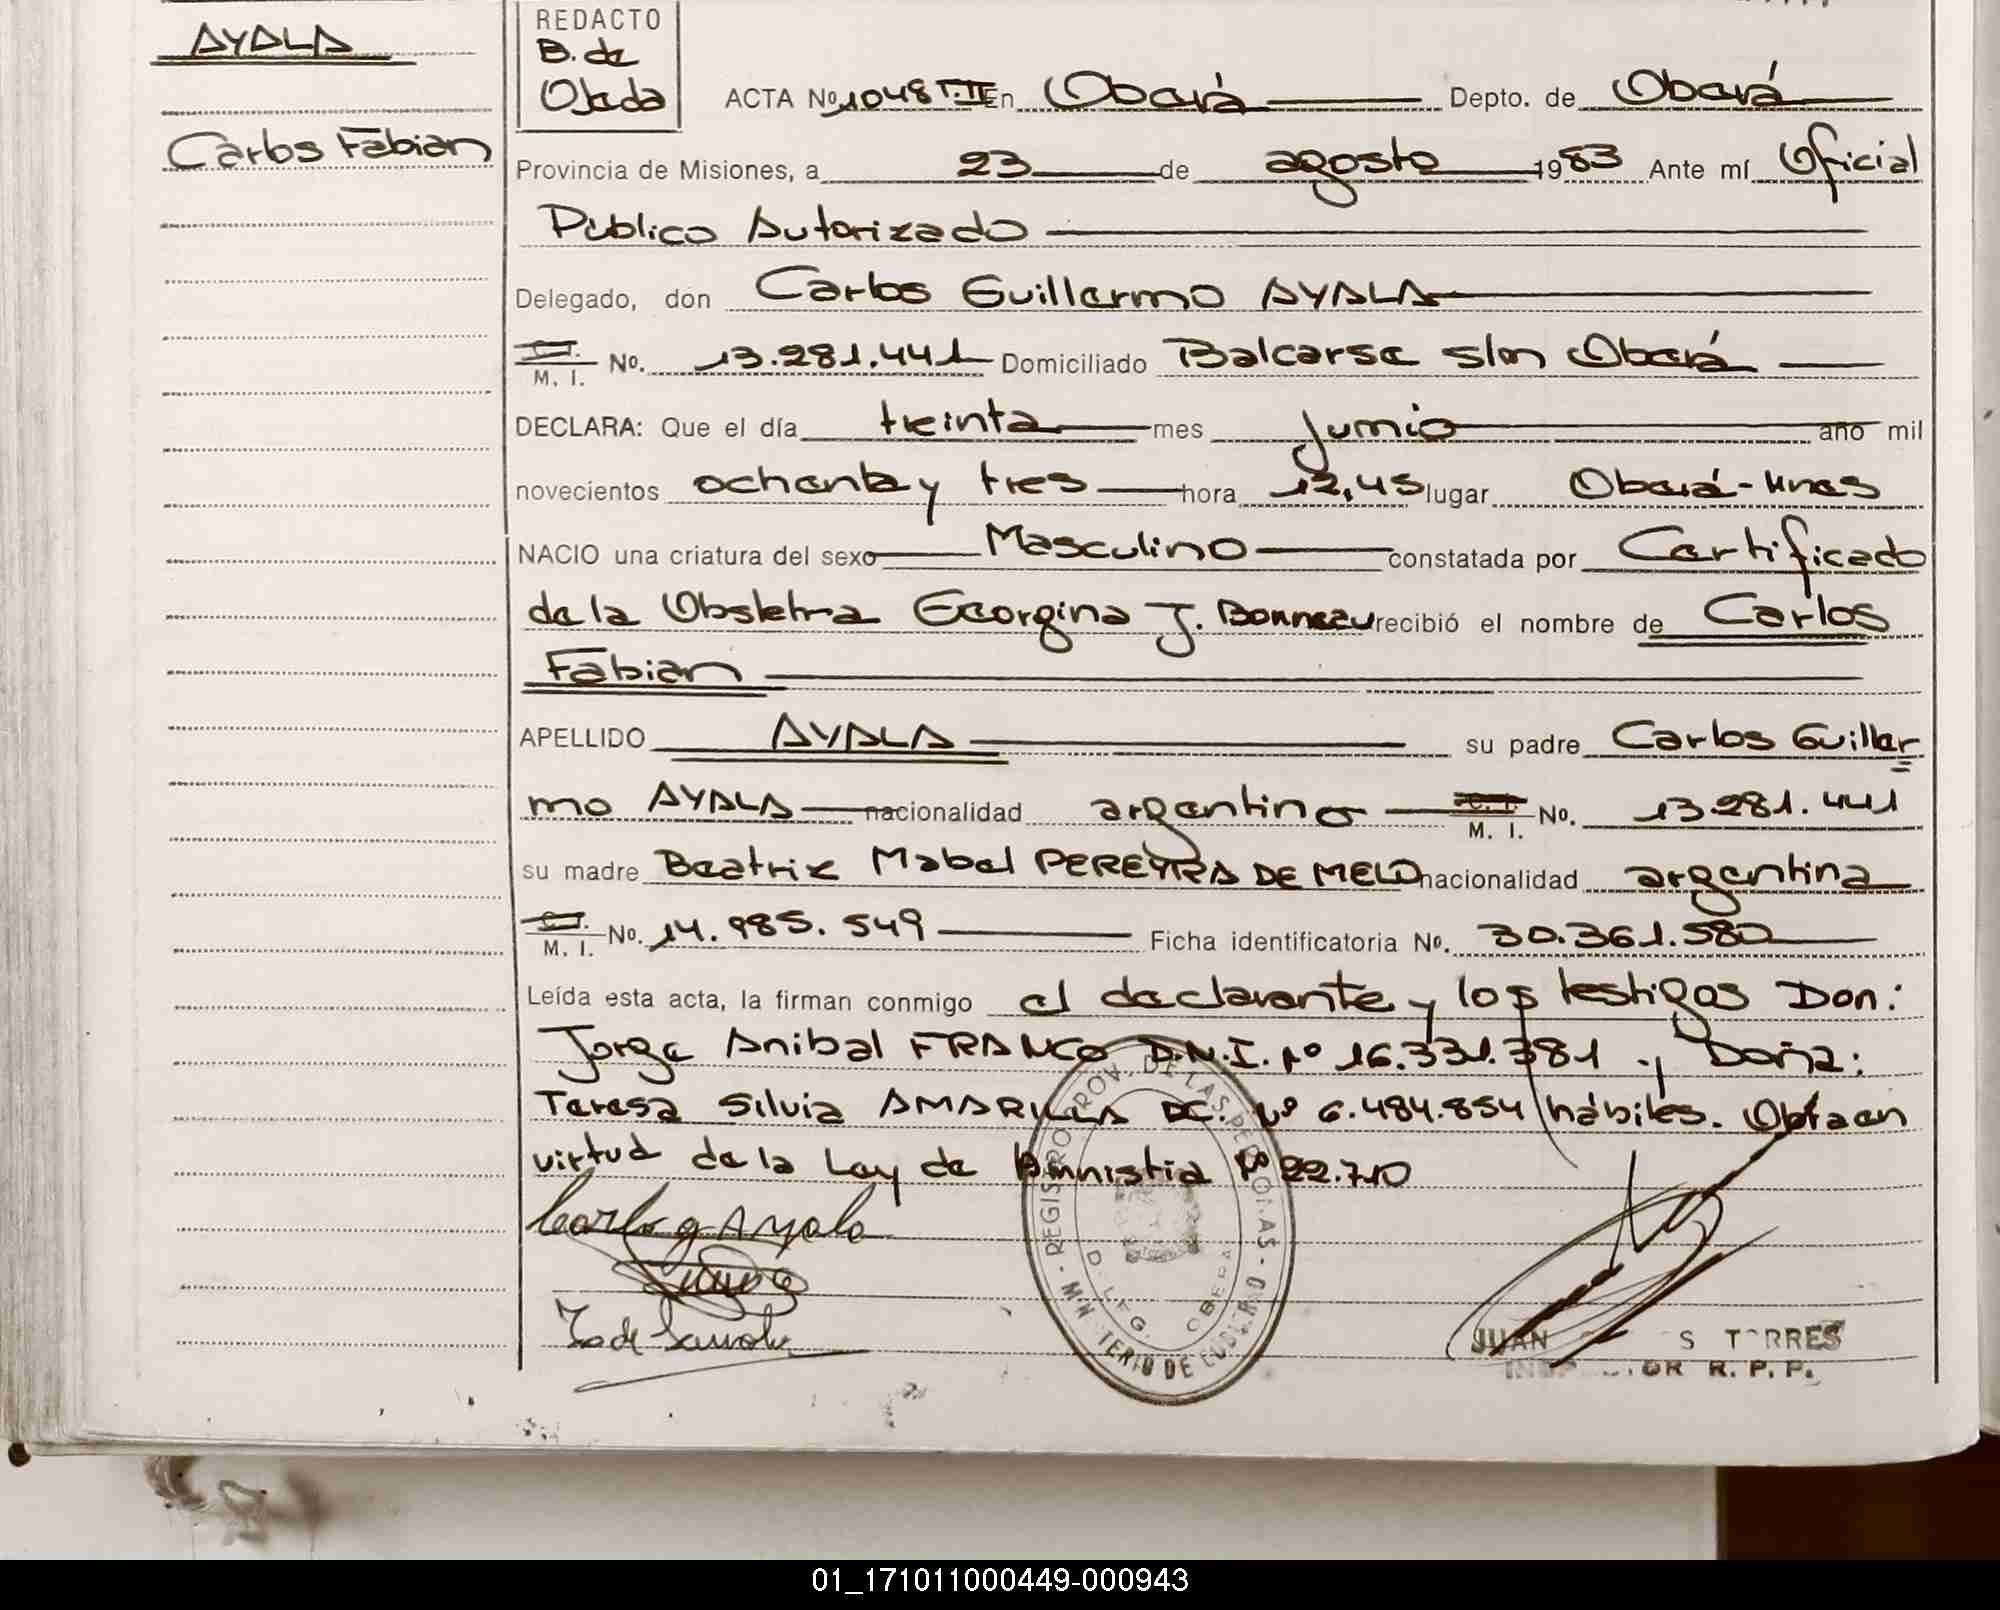 AYALA
Carlos Fabian
REDACTO
B. de
Ojeda
ACTA No 1048 T.II En Oberá Depto. de Oberá
Provincia de Misiones, a 23 de agosto 1983 Ante mí Oficial
Público Autorizado
Delegado, don Carlos Guillermo AYALA
C.I. M. I. No. 13.281.441 Domiciliado Balcarse s/n Oberá
DECLARA: Que el día treinta mes junio año mil
novecientos ochenta y tres hora 12,45 lugar Oberá-Mnes
NACIO una criatura del sexo Masculino constatada por Certificado
de la Obstetra Georgina J. Bonneau recibió el nombre de Carlos
Fabian
APELLIDO AYALA su padre Carlos Guiller
mo AYALA nacionalidad argentino C. I. M. I. No. 13.281.441
su madre Beatriz Mabel PEREYRA DE MELO nacionalidad argentina
C.I. M. I. No. 14.985.549 Ficha identificatoria No. 30.361.580
Leída esta acta, la firman conmigo el declarante y los testigos Don:
Jorge Anibal FRANCO D.N.I. Nº 16.331.381 y Doña:
Teresa Silvia AMARILLA DC. Nº 6.484.854 hábiles. Obra en
virtud de la Ley de Amnistia Nº 22.710
Carlos G Ayala
REGISTRO PROV. DE LAS PERSONAS - MINISTERIO DE GOBIERNO -
DELEG. OBERA
JUAN S TORRES
R. P. P.
01_171011000449-000943